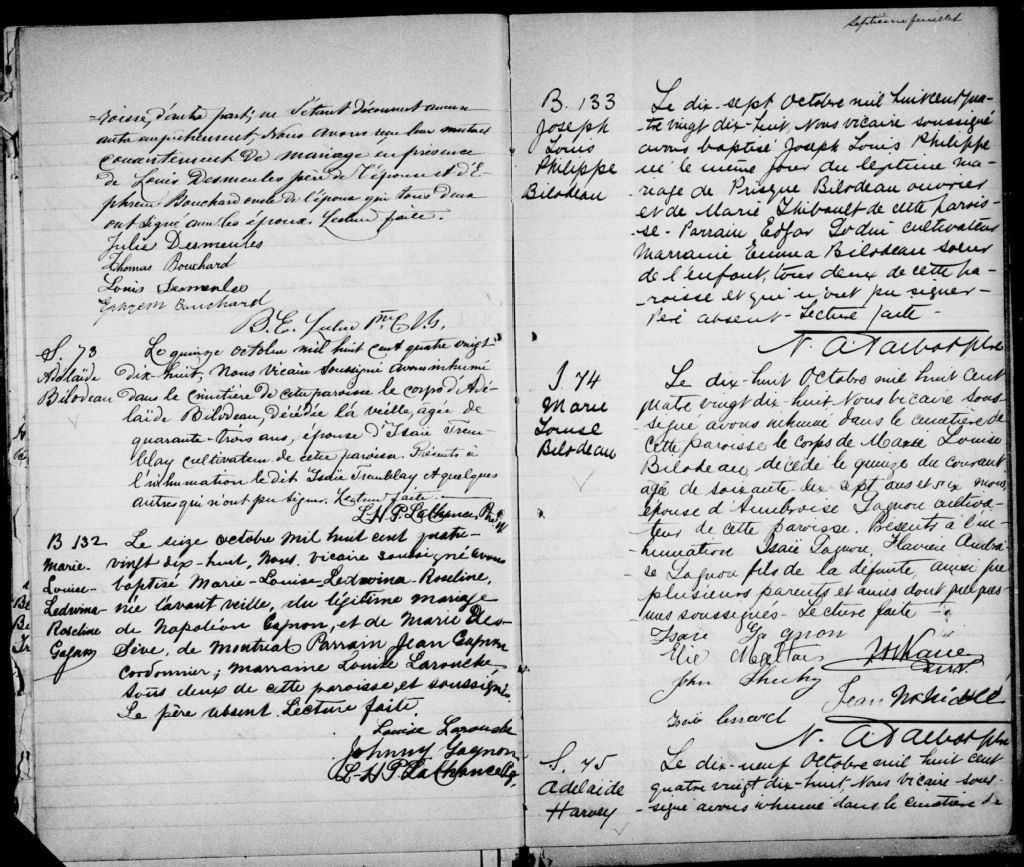 -roisse, d'autre part; ne s'étant découvert aucun
autre empêchement, Nous avons reçu leur mutuel
consentement de mariage en présence
de Louis Desmeules père de l'épouse et d'É-
phrem Bouchard oncle de l'époux qui tous deux
ont signé avec les époux. Lecture faite.
Julie Desmeules
Thomas Bouchard
Louis Desmeules
Ephrem Bouchard
B. E. Ptre
S. 73
Adélaïde
Bilodeau
Le quinze octobre mil huit cent quatre vingt
dix-huit, Nous vicaire soussigné avons inhumé
dans le cimetière de cette paroisse le corps d'Adé-
laïde Bilodeau, décédée la veille, agée de
quarante-trois ans, épouse d'Isaïe Trem-
blay cultivateur de cette paroisse. Présents à
l'inhumation le dit Isaïe Tremblay et quelques
autres qui n'ont pu signer. Lecture faite.
L-H. P. LaChance, Ptre
B 132
Marie-
Louise-
Ledwina-
Roseline
Gagnon
Le seize octobre mil huit cent quatre-
vingt dix-huit, Nous, vicaire soussigné avons
baptisé Marie-Louise-Ledwina-Roseline,
née l'avant veille, du légitime mariage
de Napoléon Gagnon, et de Marie Des-
Sève, de Montréal Parrain Jean Gagnon
cordonnier; marraine Louise Larouche
tous deux de cette paroisse, et soussignés.
Le père absent. Lecture faite
Louise Larouche
Johnny Gagnon
L-H P LaChance Ptr.
Septième feuillet
B. 133
Joseph
Louis
Philippe
Bilodeau
Le dix-sept Octobre mil huit cent qua-
tre vingt dix-huit, Nous vicaire soussigné
avons baptisé Joseph Louis Philippe
né le même jour du légitime ma-
riage de Prisque Bilodeau ouvrier
et de Marie Thibault de cette parois-
se. Parrain Edgar cultivateur
Marraine Emma Bilodeau soeur
de l'enfant, tous deux de cette pa-
roisse et qui n'ont pu signer-
Père absent- Lecture faite-
N. A Talbot ptre
S. 74
Marie
Louise
Bilodeau
Le dix-huit Octobre mil huit cent
quatre vingt dix-huit. Nous vicaire sous-
signé avons inhumé dans le cimetière de
cette paroisse le corps de Marie Louise
Bilodeau, décédé le quinze du courant
agé de soixante-dix sept ans et six mois,
épouse d'Ambroise Gagnon cultiva-
teur de cette paroisse. Présents à l'in-
humation Isaïe Gagnon, Flavien Ambroi-
se Gagnon fils de la défunte, ainsi que
plusieurs parents et amis dont quelques
uns soussignés- Lecture faite-
Isaïe Gagnon
Elie Maltais
John
Jean
N. A Talbot ptre
S. 75
Adelaide
Harvey
Le dix-neuf Octobre mil huit cent
quatre vingt dix-huit, Nous vicaire sous-
signé avons inhumé dans le cimetière de